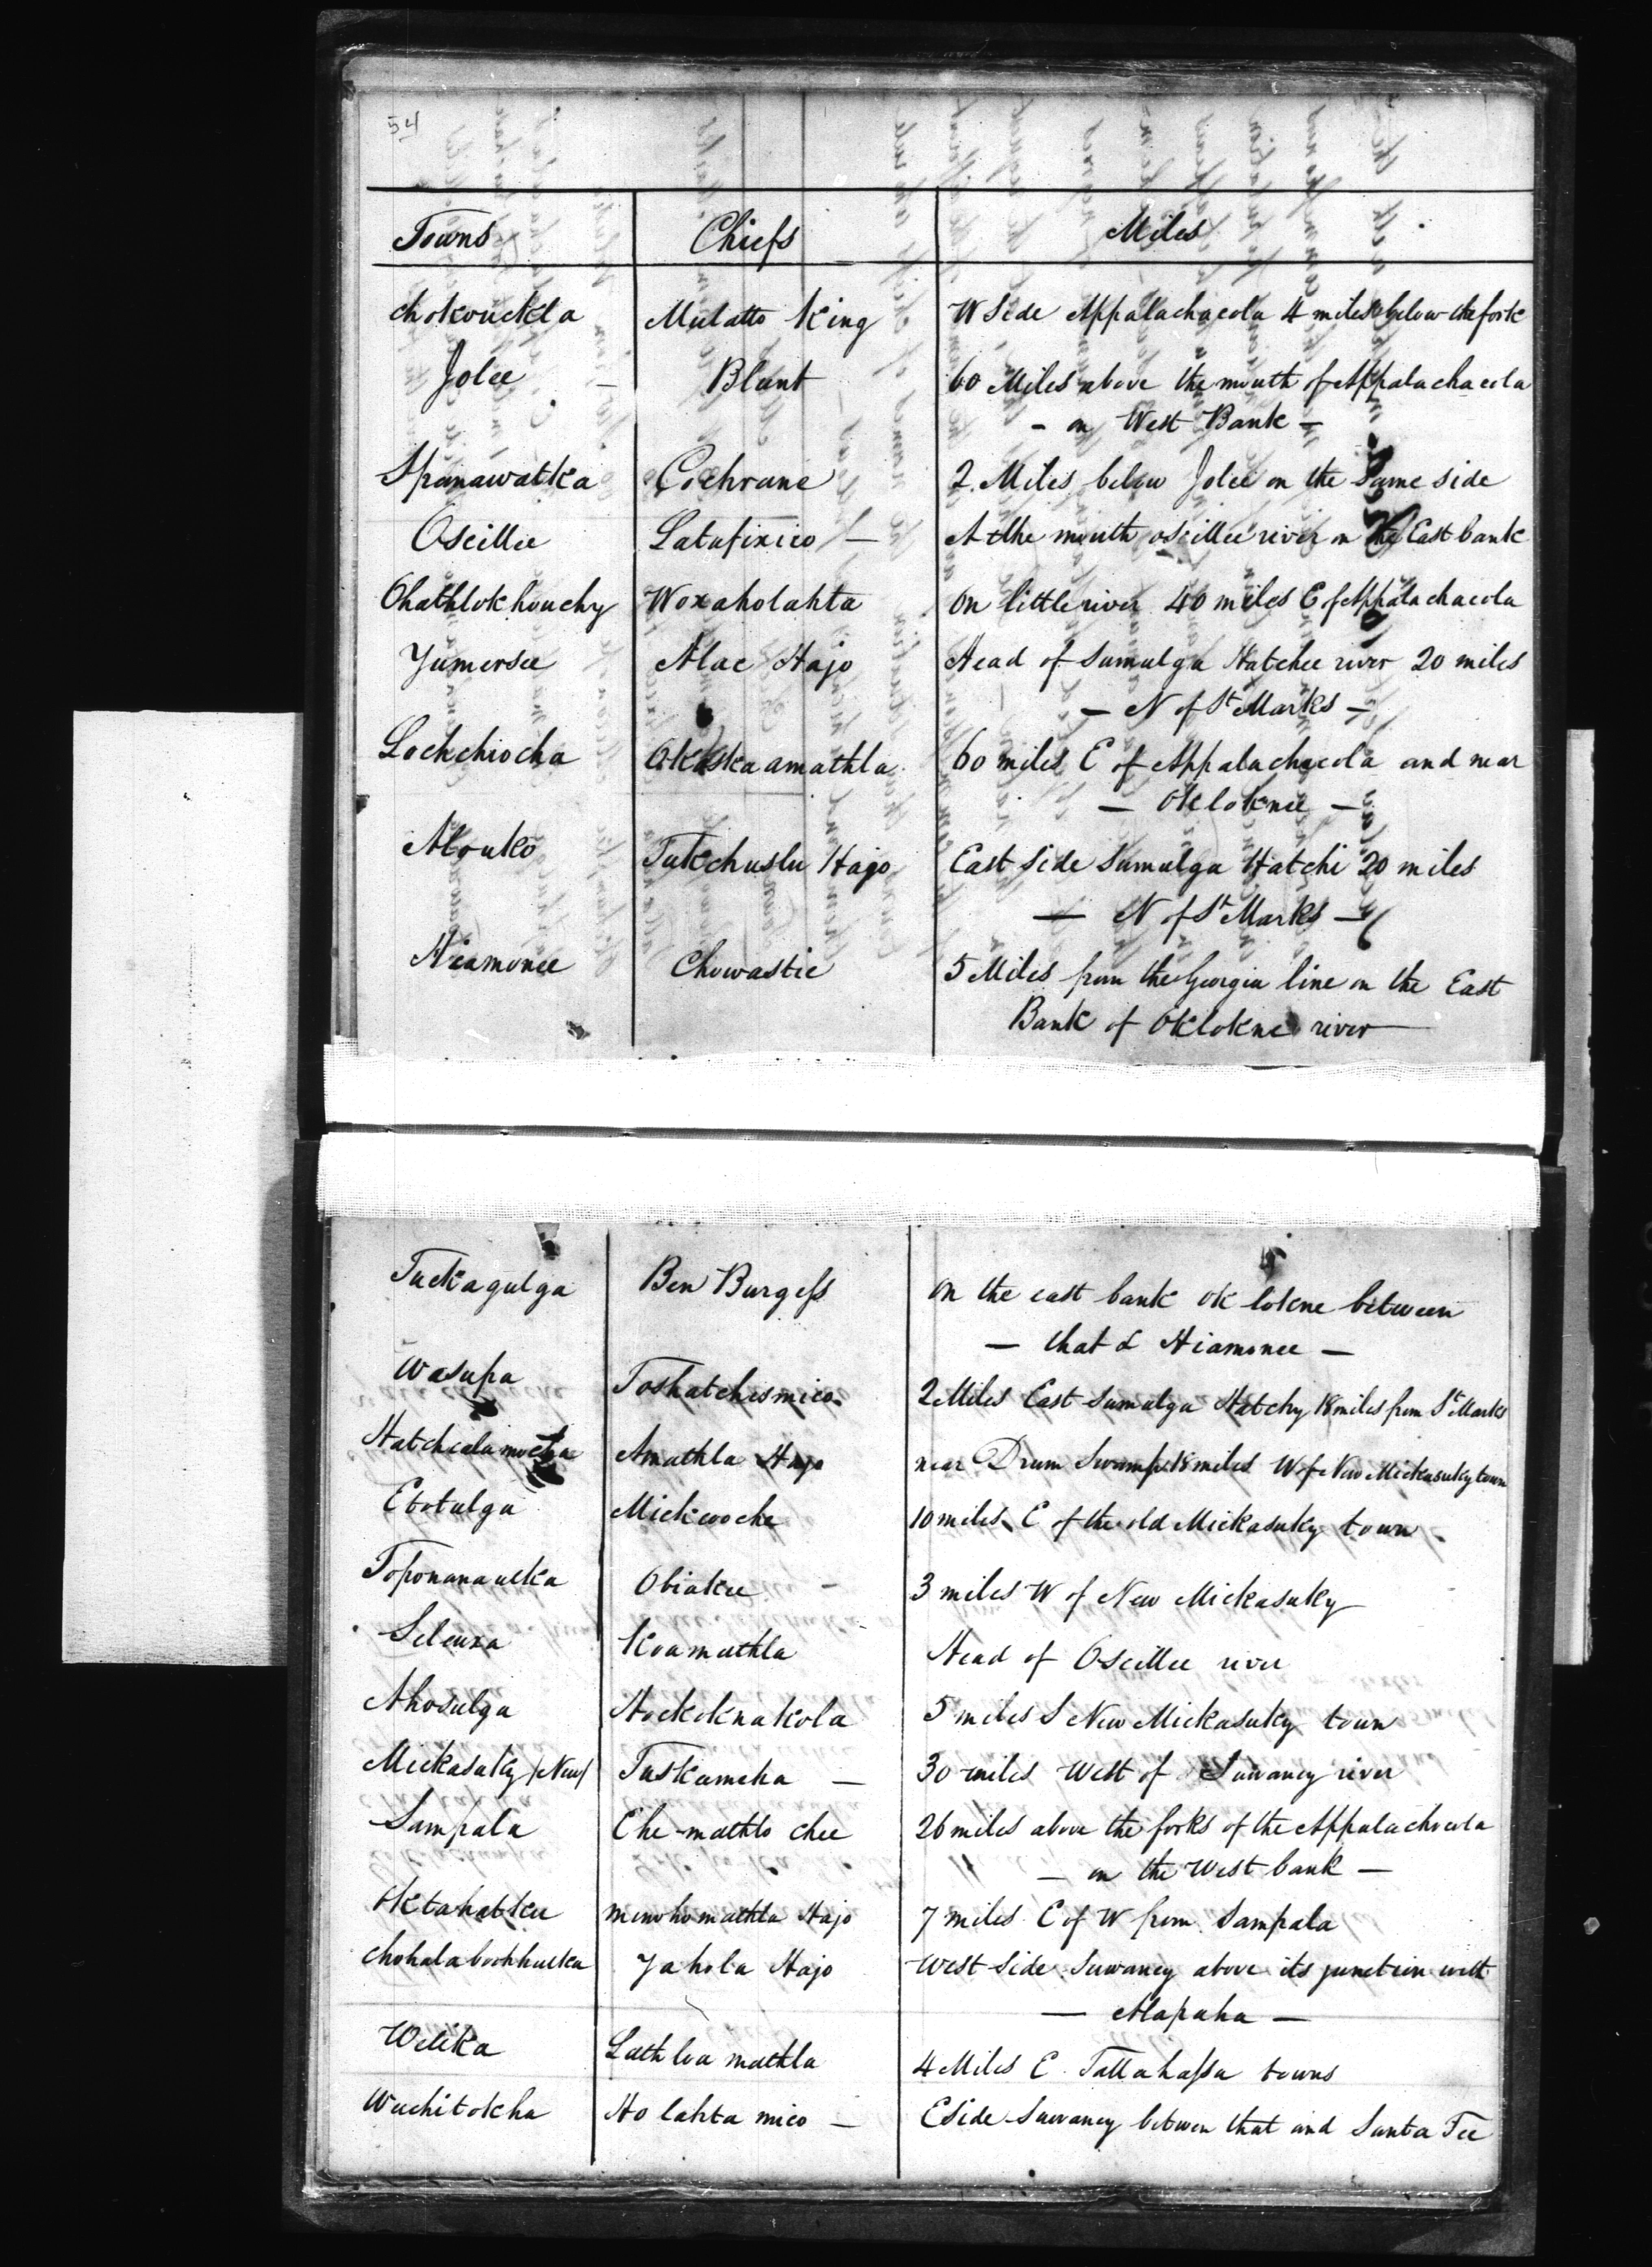 54
Towns Chiefs Miles
Chokouckla Mulatto King W Side Appalachacola 4 miles below the fork
Jolee Blunt 60 Miles above the mouth of Appalachacola
- on West Bank -
Spanawatka Cochrane 2 Miles below Jolee on the Same side
Oscillee Latafixico - At the mouth oscillee river on the East bank
Ohathlokhouchy Woxaholahta On little river 40 miles E of Appalachacola
Yumersee Alac Hajo Head of Sumulga Hatchee river 20 miles
- N of St Marks -
Lochchiocha Okaskaamathla 60 miles E of Appalachacola and near
- Okloknee -
Alouko Tukchuslu Hajo East Side Sumulga Hatchi 20 miles
- N of St Marks -
Hiamonee Chowastie 5 Miles from the Georgia line on the East
Bank of Oklokne river
Tuckagulga Ben Burgess On the east bank ok lokne between
- that & Hiamonee -
Wasupa Toshatchesmico 2 Miles East Sumulga Hatchy 18 miles from St Marks
Hatchcalamocha Amathla Hajo near Drum Swamp 18 miles W of New Mickasuky town
Etotulga Mickcooche 10 miles E of the old Mickasuky town
Toponanaulka Obiakee 3 miles W of New Mickasuky
Seleuxa Koamathla Head of Oscillee river
Ahosulga Hockoknakola 5 miles S New Mickasuky town
Mickasuky (New) Tuskameha - 30 miles West of Suwaney river
Sampala Ehe-mathlo chee 26 miles above the forks of the Appalachicola
- on the West bank -
Oktahatkee Menohomathla Hajo 7 miles E of W from Sampala
Chohalaboohhulka Yahola Hajo West side Suwaney above its junction with
- Alapaha -
Welika Lathloa mathla 4 Miles E Tallahassa towns
Wachitokha Ho lahta mico - E Side Suwaney betwen that and Santa Fee